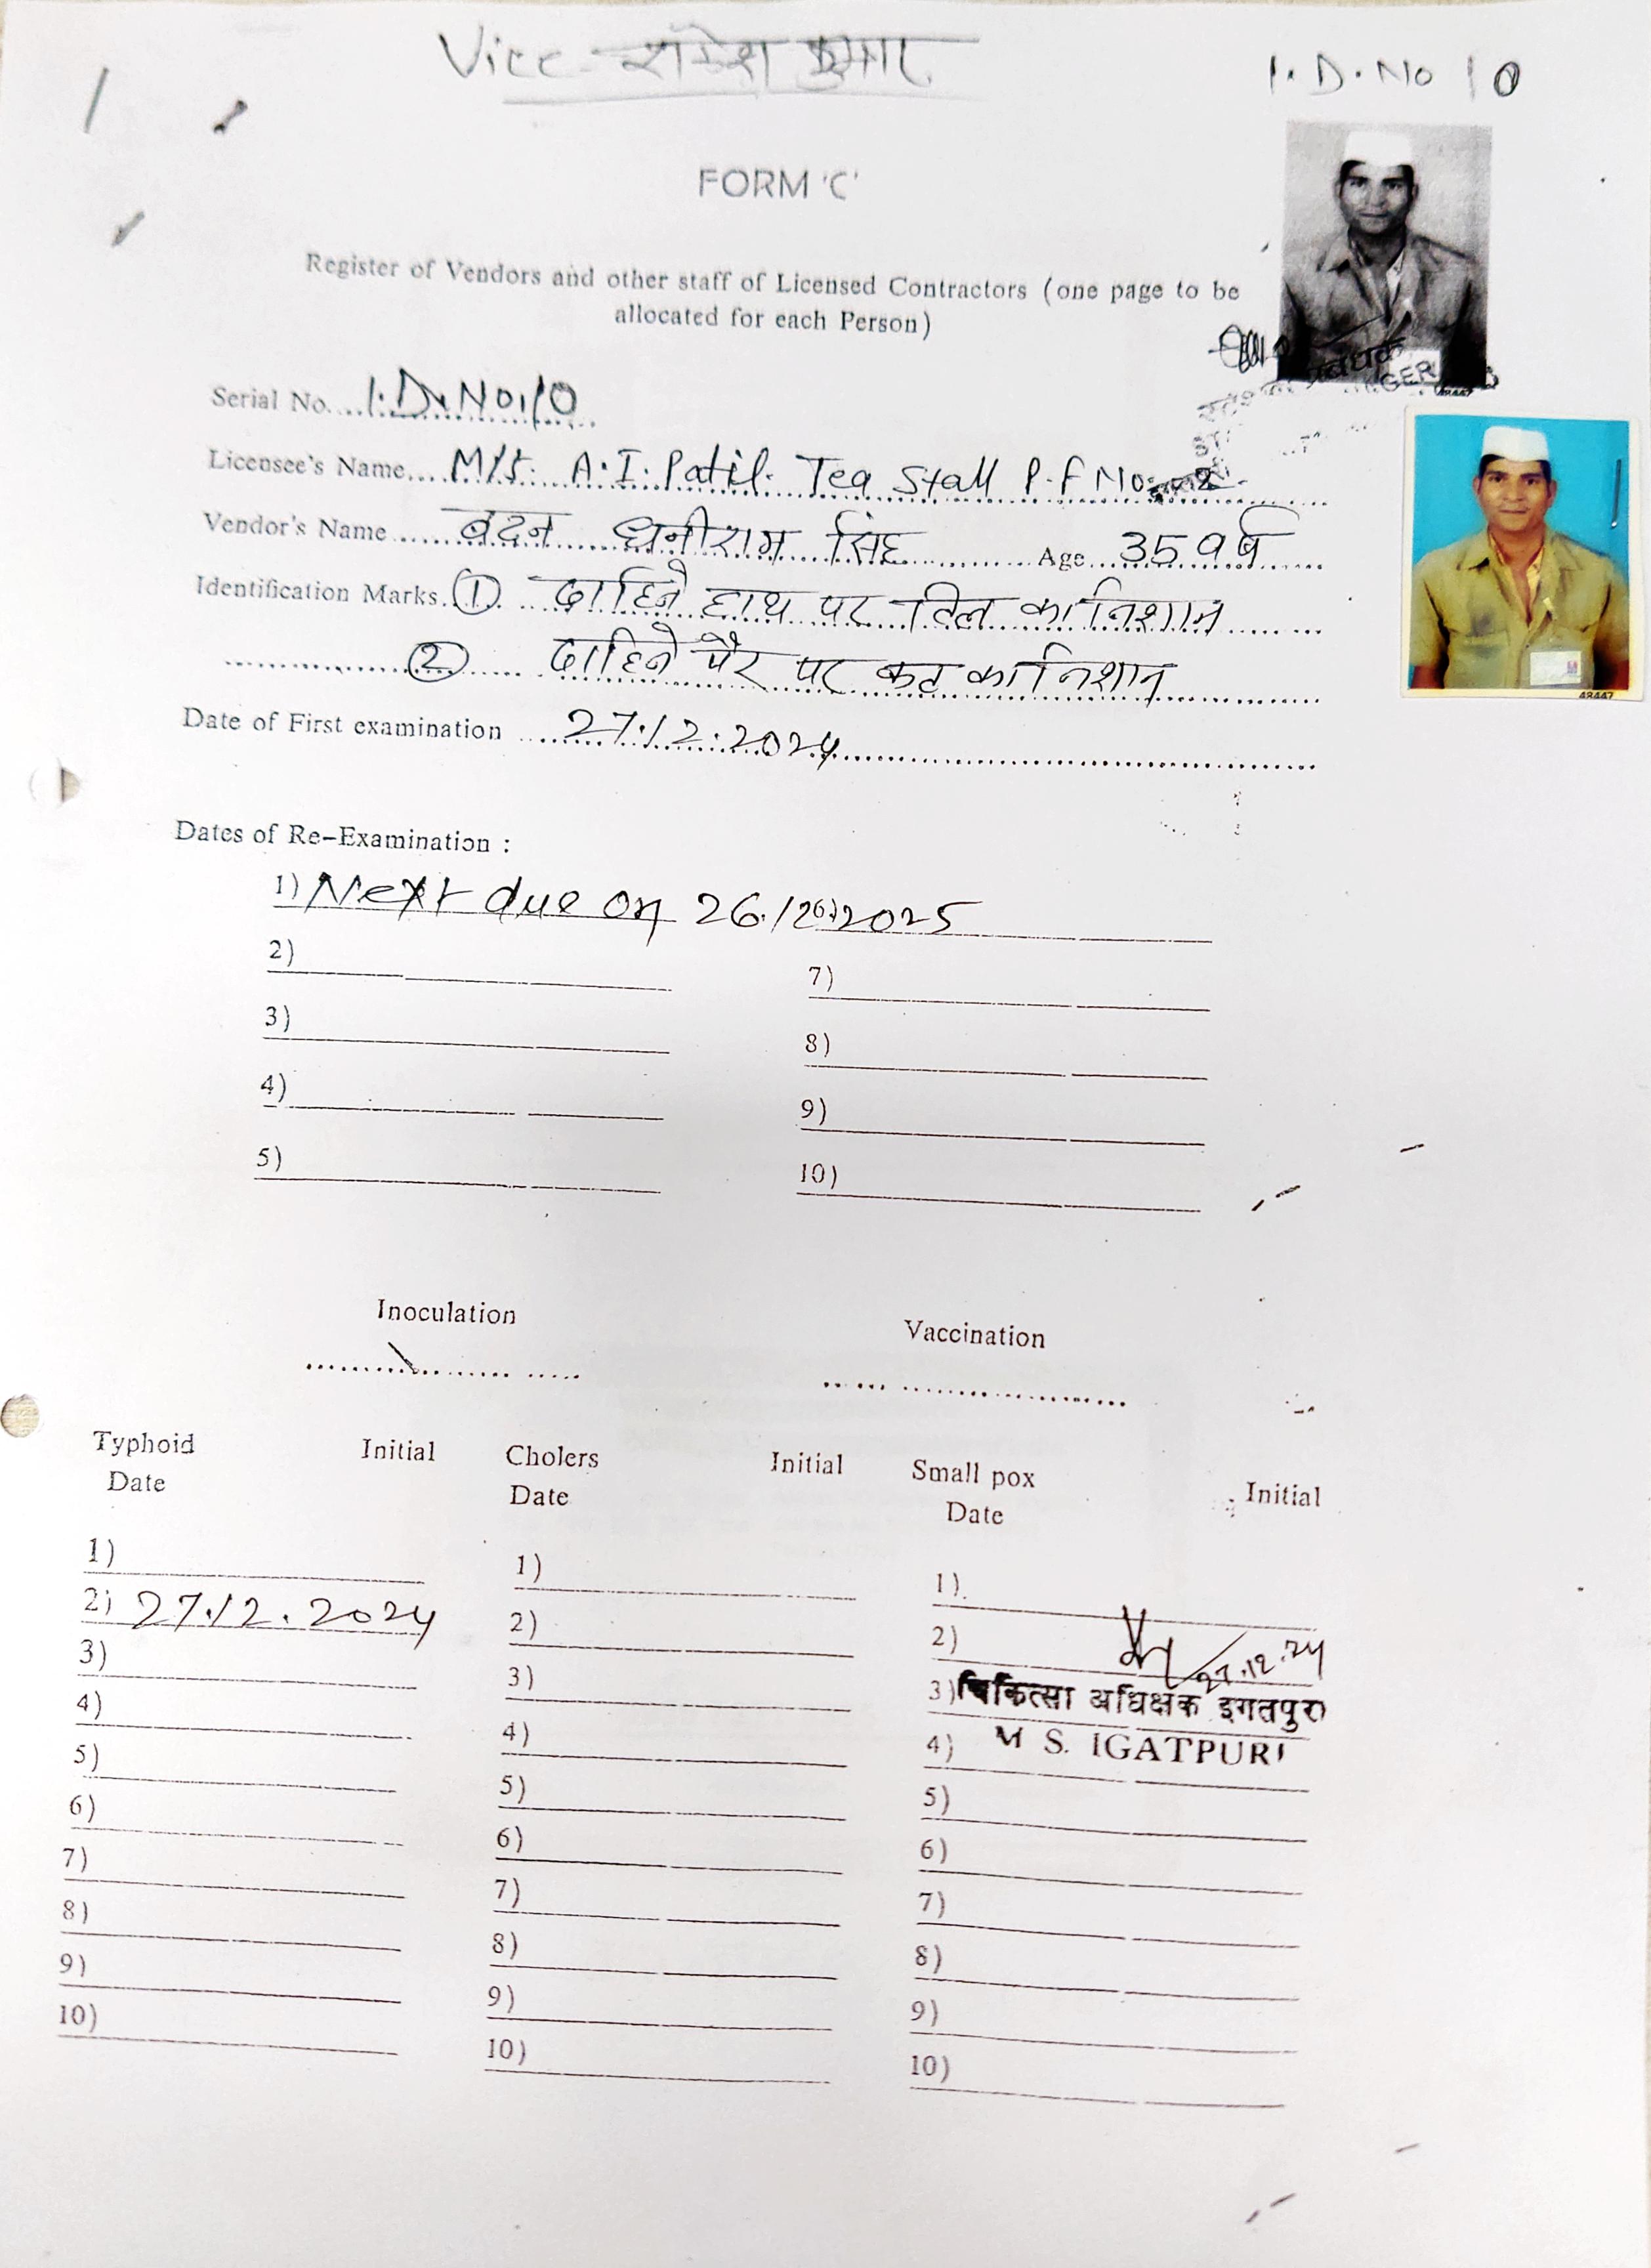 Vice - राकेश कुमार
I.D.No 10
FORM 'C'
Register of Vendors and other staff of Licensed Contractors (one page to be
allocated for each Person)
Serial No. I.D.No.10
Licensee's Name M/s. A.I. Patil. Tea Stall P.F No. 2
Vendor's Name बदन धनीराम सिंह Age 35 वर्ष
Identification Marks. ① दाहिने हाथ पर तिल का निशान
② दाहिने पैर पर कट का निशान
48447
Date of First examination 27.12.2024
Dates of Re-Examination :
1) Next due on 26.12.2025
2) 7)
3) 8)
4) 9)
5) 10)
Inoculation Vaccination
Typhoid Initial Cholers Initial Small pox Initial
Date Date Date
1) 1) 1)
2) 27.12.2024 2) 2) 27.12.24
3) 3) 3) चिकित्सा अधिक्षक इगतपुरी
4) 4) 4) M S. IGATPURI
5) 5) 5)
6) 6) 6)
7) 7) 7)
8) 8) 8)
9) 9) 9)
10) 10) 10)